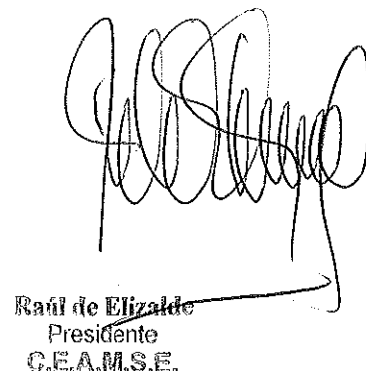 Raúl de Elizalde
Presidente
C.E.A.M.S.E.